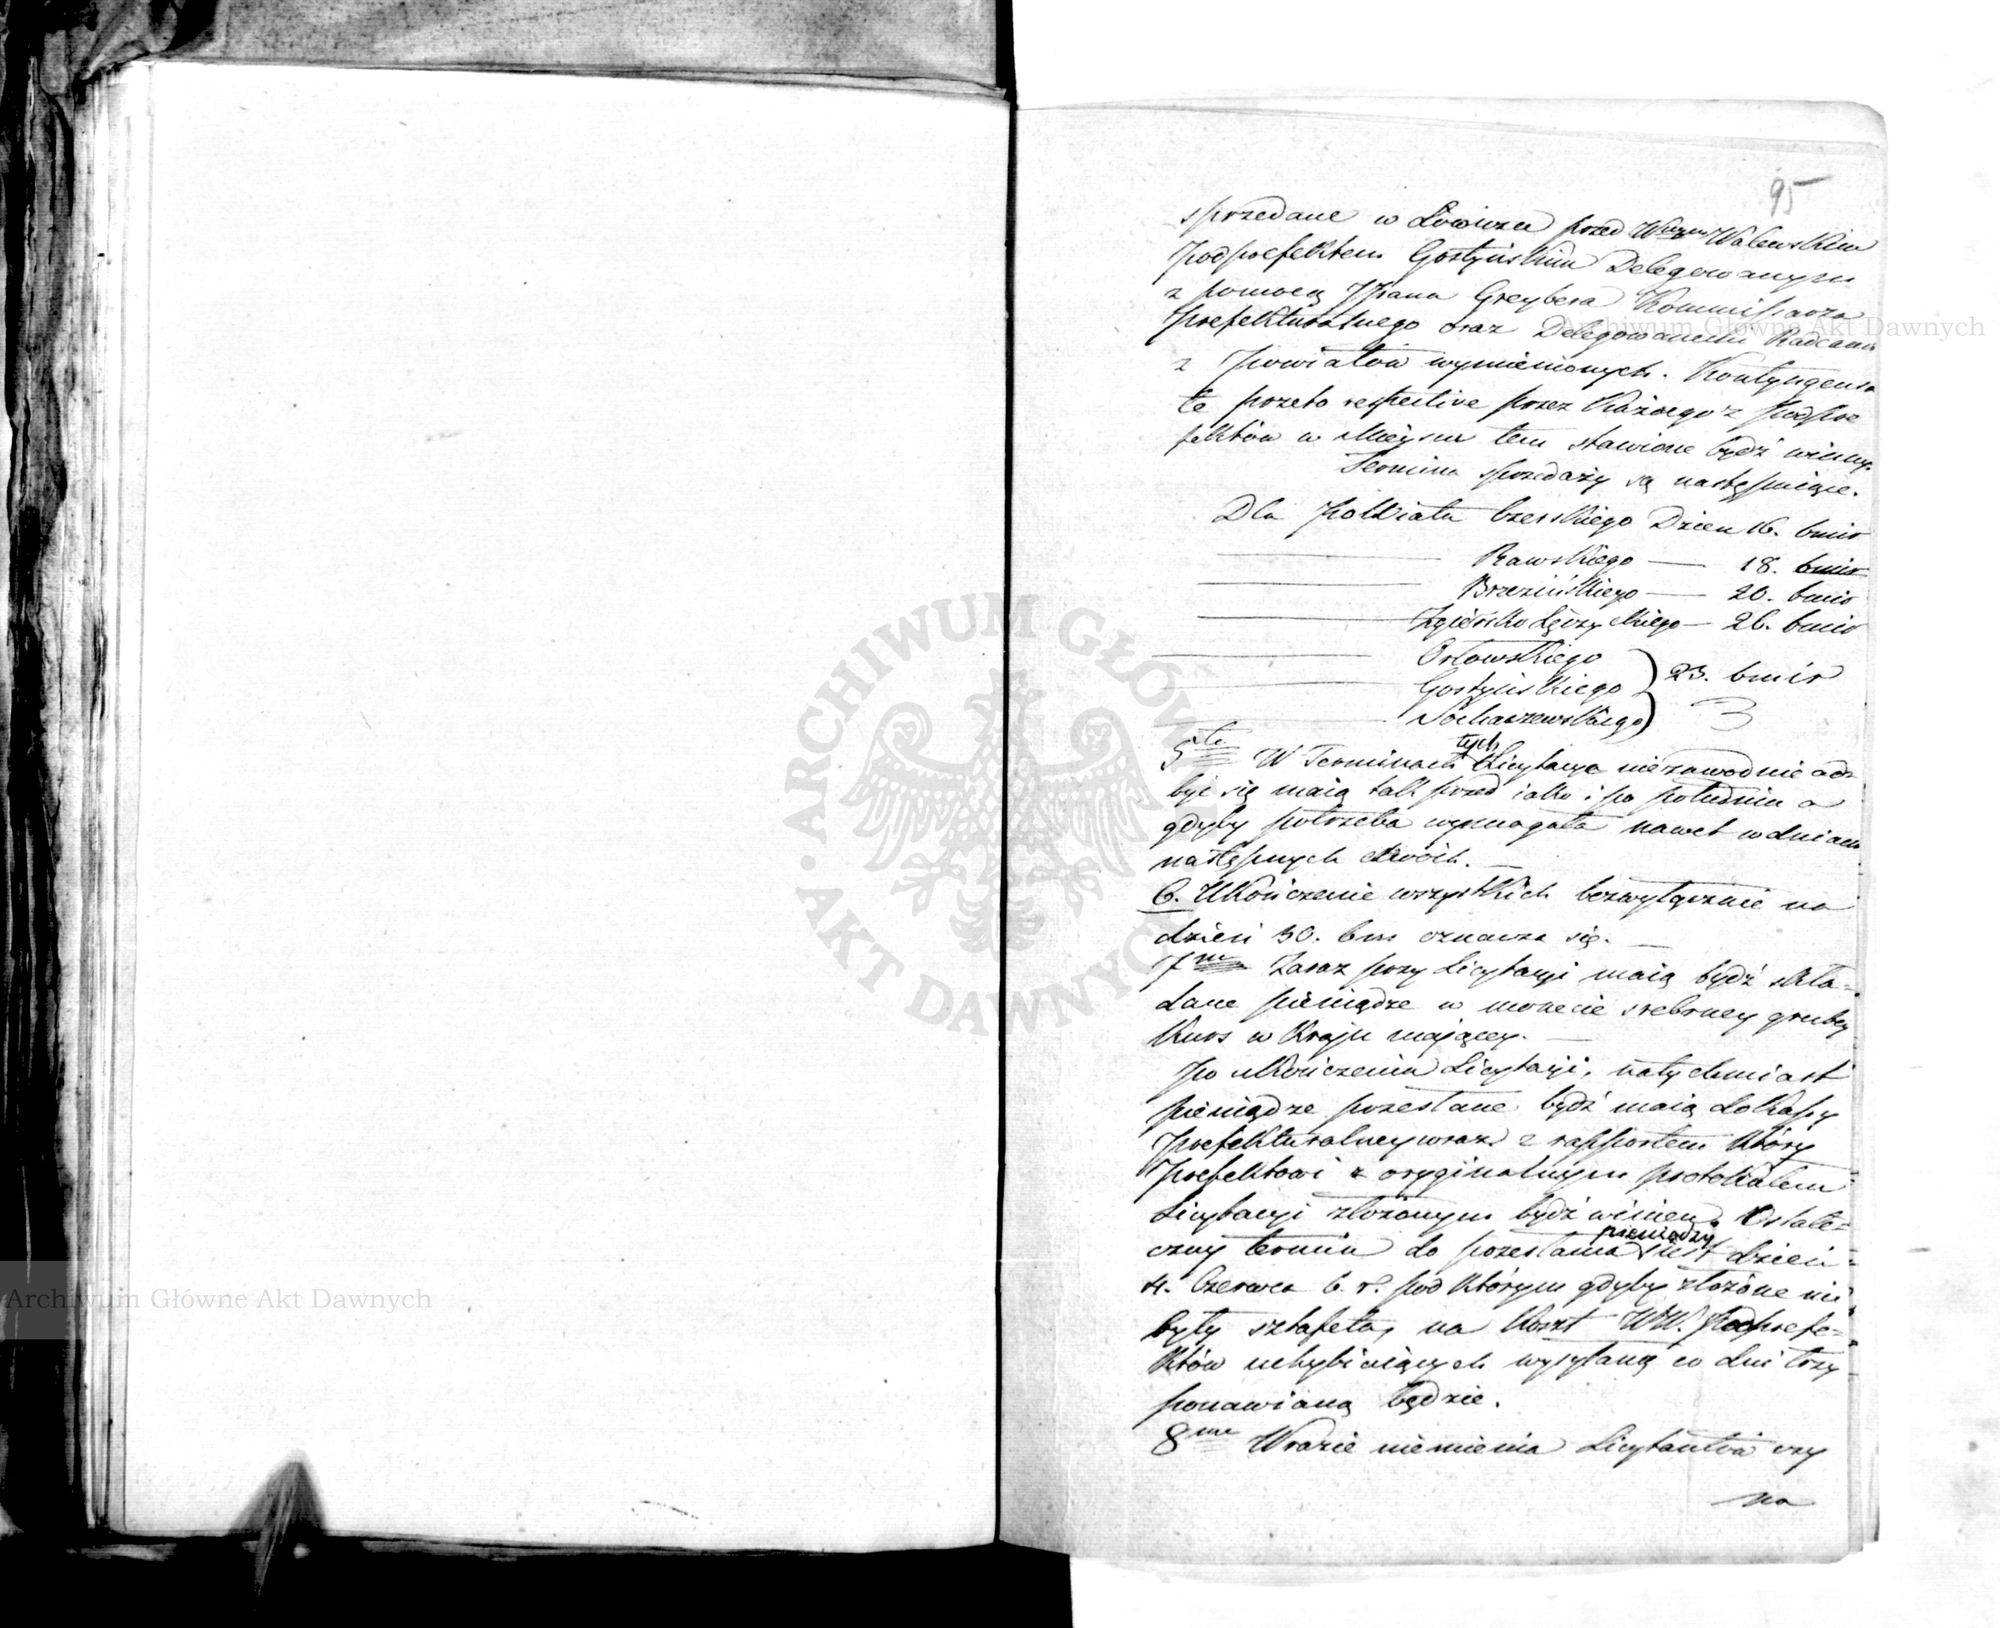 95
sprzedane w Łowiczu przed Walewskim
Podprefektem Gostyńskim Delegowanym
z pomocą JPana Greybera Kommissarza
Prefekturalnego oraz Delegowanemi Radcami
z Powiatów wymienionych. Kontyngensa
te przeto respective przez Każdego z podpre
fektów w Mieyscu tem stawione bydź winny.
Termina sprzedaży są następuiące.
Dla Powiatu Czerskiego Dzień 16. bmir
Rawskiego — 18. bmir
Brzezińskiego — 20. bmir
Zgiersko Łęczyckiego — 26. bmir
Orłowskiego
Gostyńskiego } 23. bmir
Sochaczewskiego
5te W Terminach tych Licytacye niezawodnie od-
być się maią tak przed iako i po południu a
gdyby potrzeba wymagała nawet w dniach
następnych dwóch. —
6. Ukończenie wszystkich bezwyłącznie na
dzień 30. bm oznacza się. —
7me Zaraz przy Licytacyi maią bydź skła-
dane pieniądze w monecie srebrney grubey
Kurs w Kraju mającey. —
Po ukończeniu Licytacyi, natychmiast
pieniądze przesłane bydź maią do Kassy
Prefekturalney wraz z rapportem Który
Prefektowi z oryginalnym protokułem
Licytacyi złożonym bydź winien. Ostate-
czny termin do przesłania pieniędzy iest dzień
4. Czerwca b. r. pod Którym gdyby złożone nie
były sztafeta, na Koszt WW. Podprefe-
Któw uchybiaiących wysyłaną co dni trzy
ponawianą będzie.
8me W razie niemienia Licytantów czy
na
Archiwum Główne Akt Dawnych
Archiwum Główne Akt Dawnych
ARCHIWUM GŁÓWNE · AKT DAWNYCH